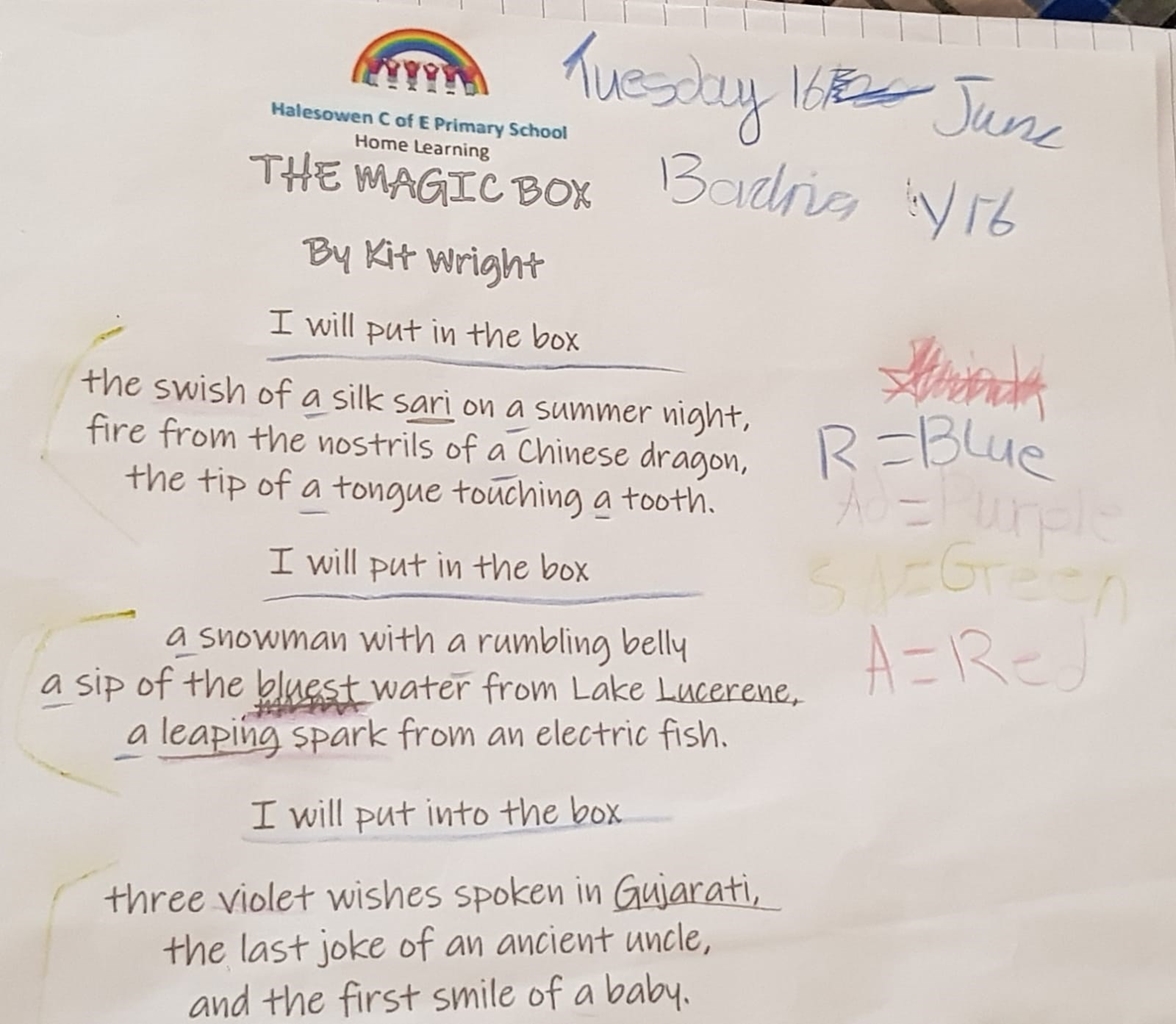 Halesowen C of E Primary School
Home Learning
Tuesday 16 June
THE MAGIC BOX
Yr6
By Kit Wright
I will put in the box
the swish of a silk sari on a summer night,
fire from the nostrils of a Chinese dragon,
the tip of a tongue touching a tooth.
R = Blue
Ad = Purple
SA = Green
A = Red
I will put in the box
a snowman with a rumbling belly
a sip of the bluest water from Lake Lucerene,
a leaping spark from an electric fish.
I will put into the box
three violet wishes spoken in Gujarati,
the last joke of an ancient uncle,
and the first smile of a baby.